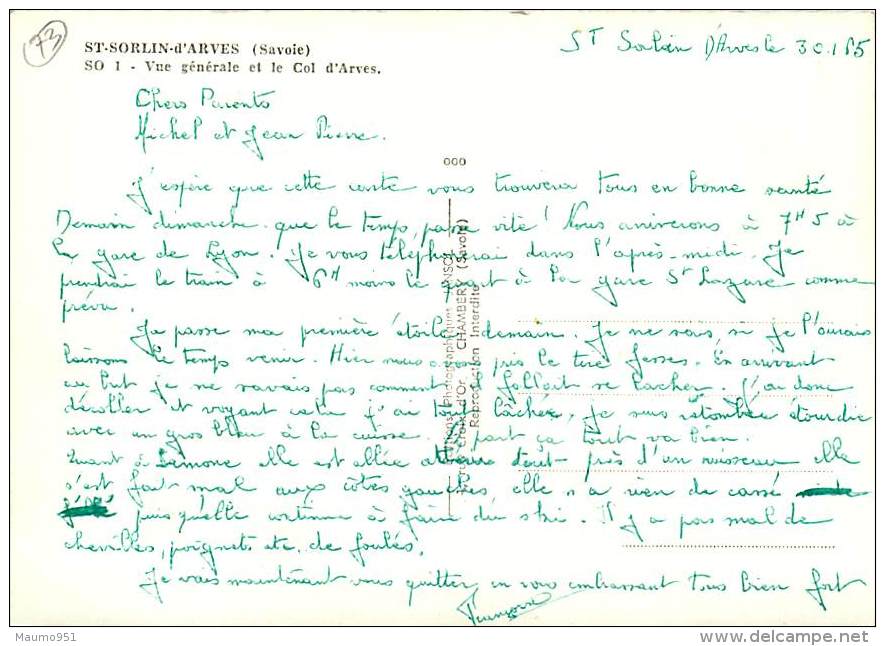 73
ST-SORLIN-d'ARVES (Savoie)
SO 1 - Vue générale et le Col d'Arves.
ST Sorlin D'Arves le 30.1.65
Chers Parents
Michel et Jean Pierre.
J'espère que cette carte vous trouvera tous en bonne santé
Demain dimanche que le temps passe vite! Nous arriverons à 7H5 à
la gare de Lyon. Je vous téléphonerai dans l'après-midi. Je
prendrai le train à 6H moins le quart à la gare St Lazare comme
prévu.
Je passe ma première étoile demain. Je ne sais si je l'aurais
laissons le temps venir. Hier nous avons pris le tire fesses. En arrivant
au but je ne savais pas comment il fallait se lacher. J'ai donc
décoller et voyant cela j'ai tout lâchée, je suis retombée étourdie
avec un gros bleu à la cuisse. A part ça tout va bien.
Quant à Simone elle est allée tout près d'un ruisseau elle
s'est fait mal aux côtes gauches elle n'a rien de cassé
puisqu'elle continue à faire du ski. Il y a pas mal de
chevilles, poignets etc. de foulés.
Je vais maintenant vous quitter en vous embrassant tous bien fort
Françoise
000
Editions Photographiques
CHAMBERY (Savoie)
Reproduction Interdite
Maumo951
delcampe.net